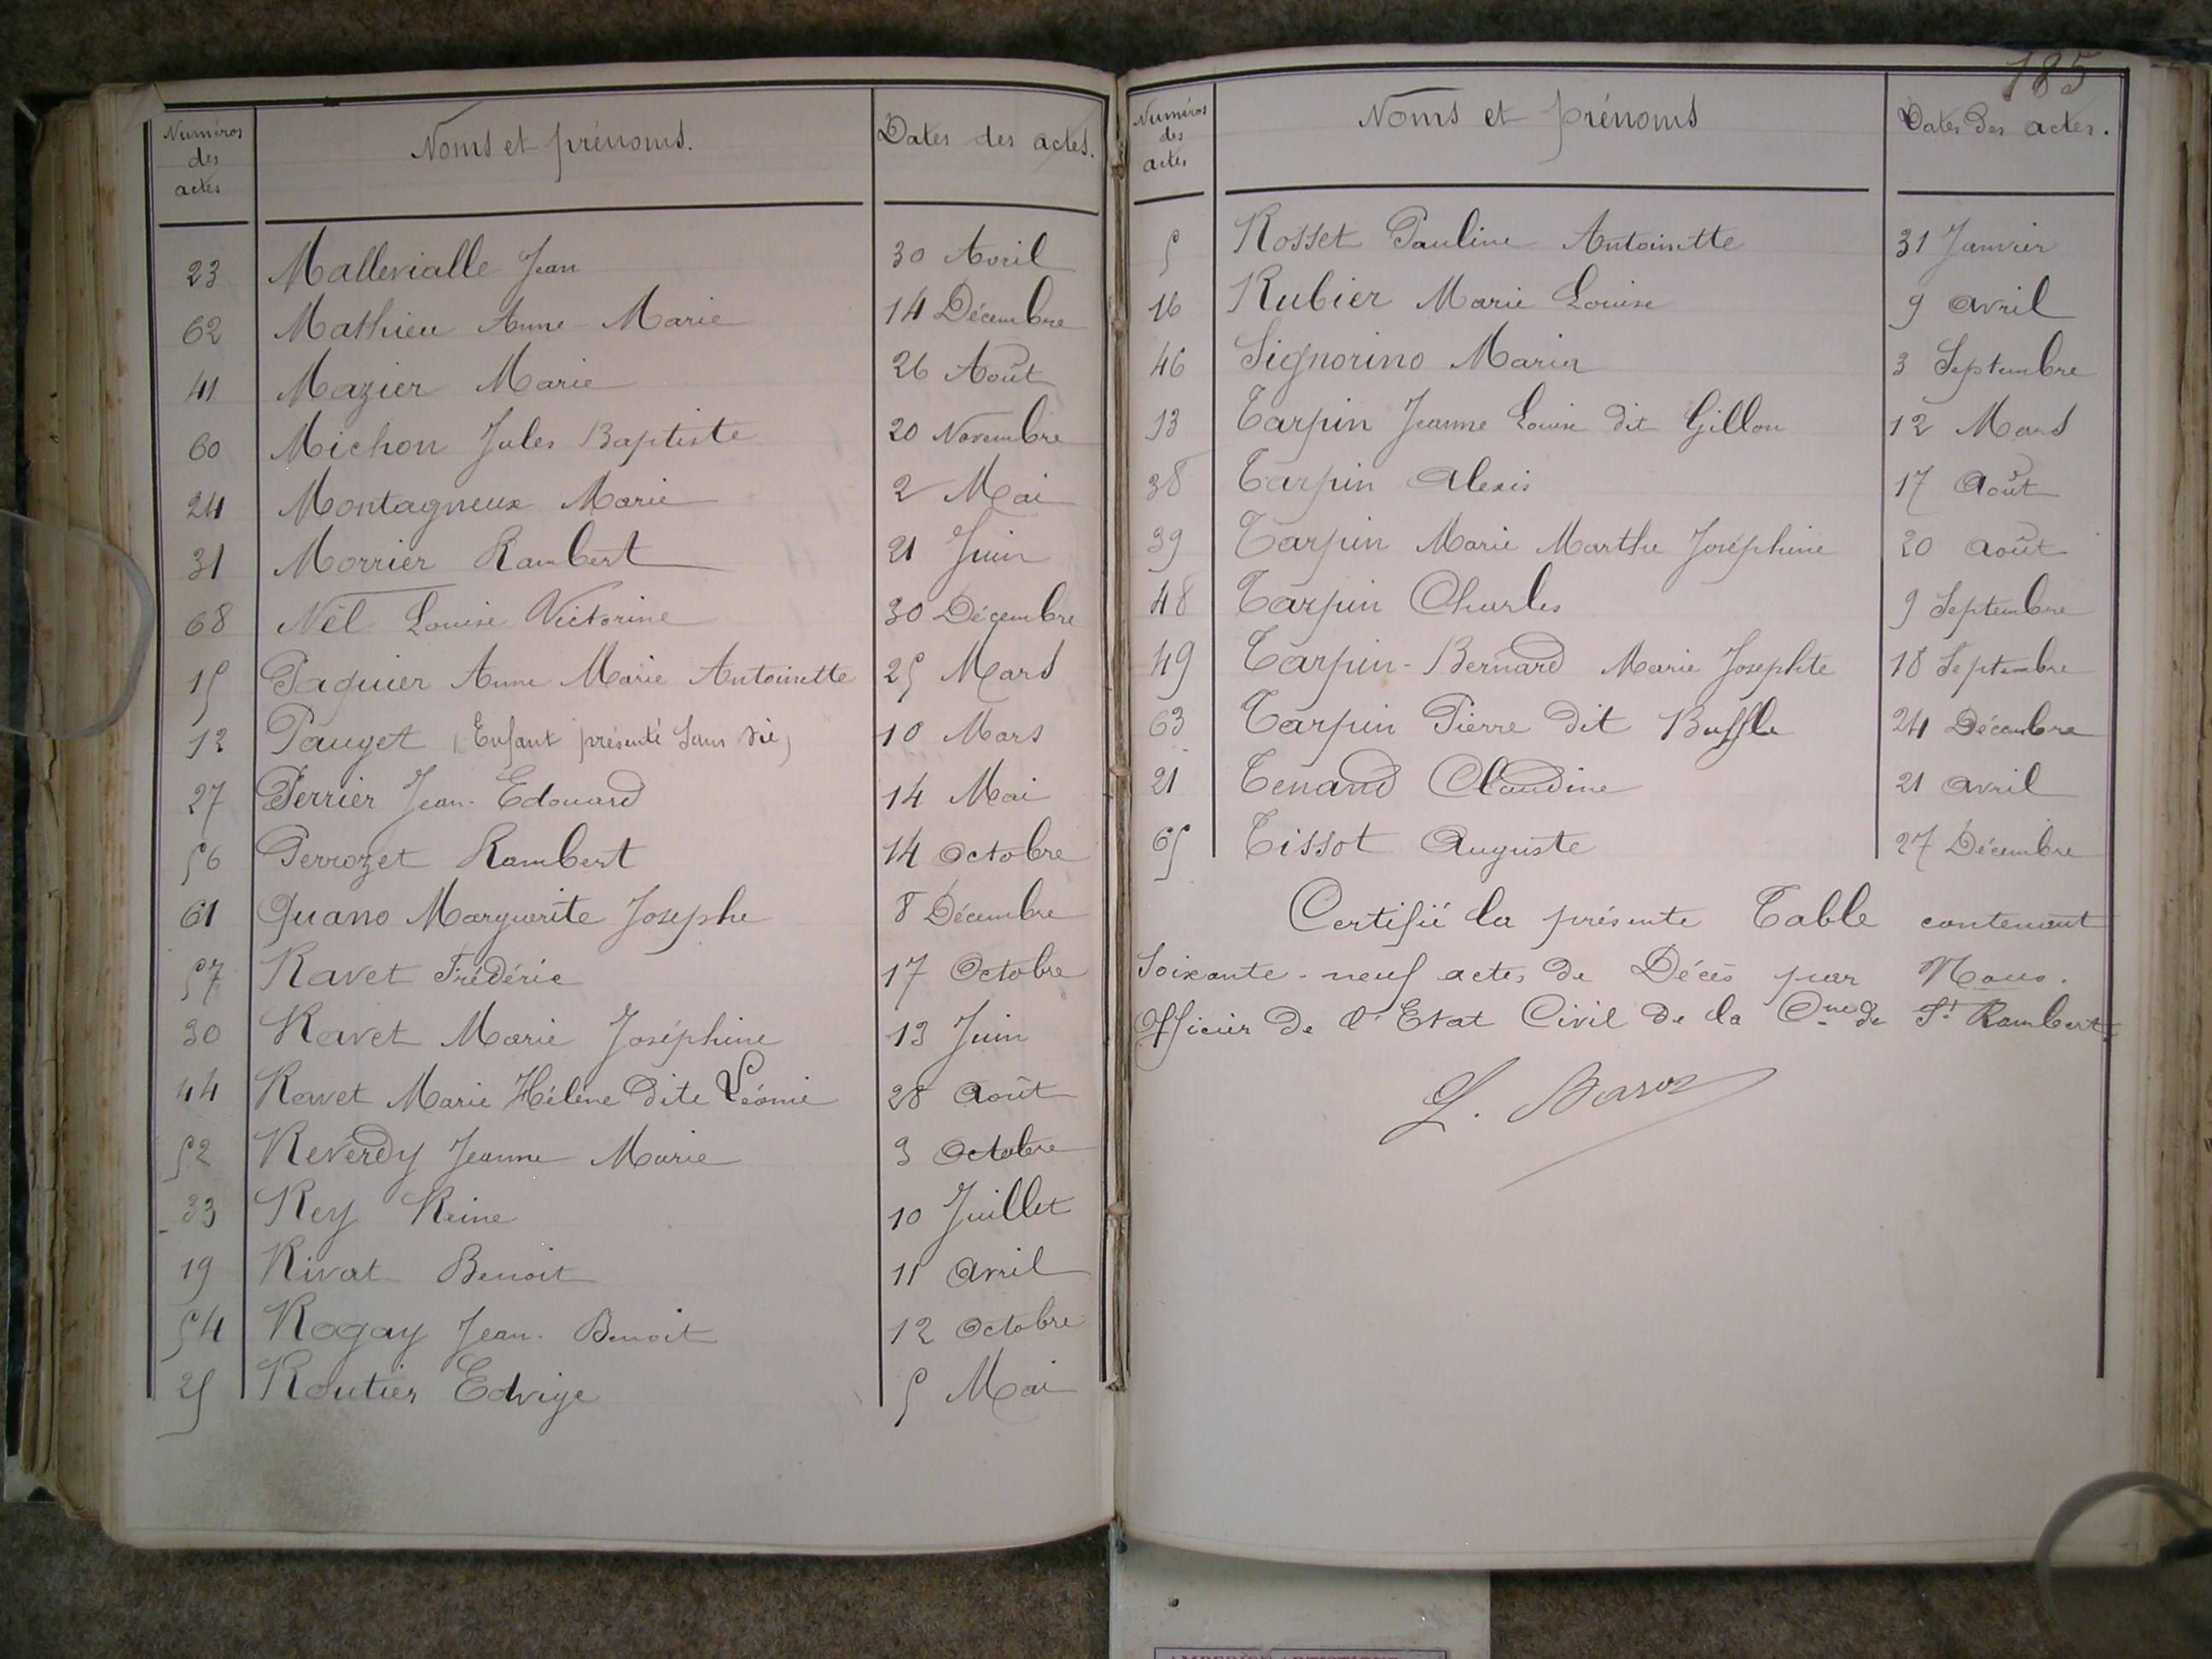 Numéros des actes Noms et prénoms. Dates des actes.
23 Mallevialle Jean 30 Avril
62 Mathieu Anne-Marie 14 Décembre
41 Mazier Marie 26 Août
60 Michon Jules Baptiste 20 Novembre
24 Montagneux Marie 2 Mai
31 Morrier Rambert 21 Juin
68 Nêl Louise Victorine 30 Décembre
15 Paquier Anne Marie Antoinette 25 Mars
12 Pauget (Enfant présenté Sans vie) 10 Mars
27 Perrier Jean-Edouard 14 Mai
56 Perrozet Rambert 14 Octobre
61 Quano Marguerite Josephe 8 Décembre
57 Ravet Frédéric 17 Octobre
30 Ravet Marie Joséphine 13 Juin
44 Ravet Marie Hélène dite Léonie 28 Août
52 Reverdy Jeanne Marie 3 Octobre
33 Rey Reine 10 Juillet
19 Rivat Benoit 11 Avril
54 Rogay Jean-Benoit 12 Octobre
25 Routier Edvige 5 Mai
185
Numéros des actes Noms et prénoms Dates des actes.
5 Rosset Pauline Antoinette 31 Janvier
16 Rubier Marie Louise 9 Avril
46 Signorino Marin 3 Septembre
13 Tarpin Jeanne Louise dit Gillon 12 Mars
38 Tarpin Alexis 17 Août
39 Tarpin Marie Marthe Joséphine 20 Août
48 Tarpin Charles 9 Septembre
49 Tarpin-Bernard Marie Josephte 18 Septembre
63 Tarpin Pierre dit Buffle 24 Décembre
21 Tenand Claudine 21 Avril
65 Tissot Auguste 27 Décembre
Certifié la présente Table contenant
Soixante-neuf actes de Décès par Nous.
Officier de l'Etat Civil de la Cne de St Rambert